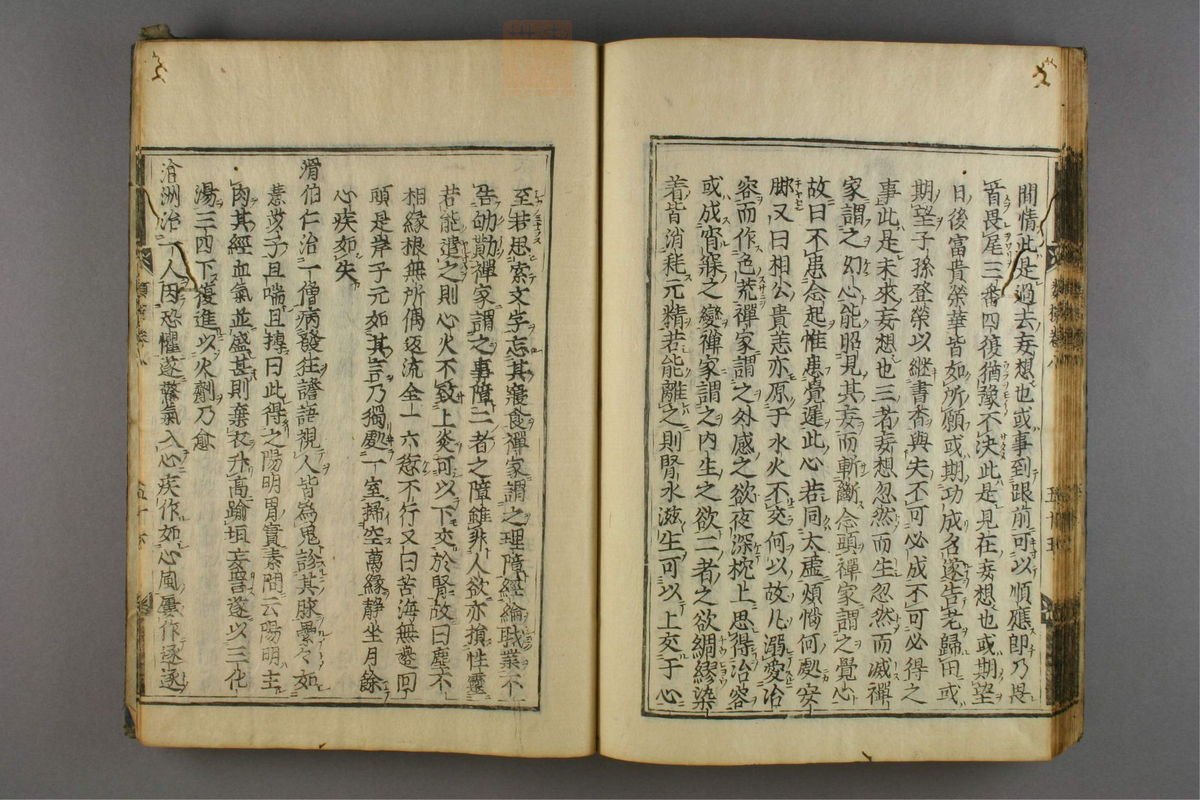 間情此是過去妄想也或事到跟前可以順應即乃畏
首畏尾三番四復猶豫不決此是見在妄想也或期望
日後富貴榮華皆如所願或期功成名遂告老歸田或
期望子孫登榮以継書香與夫不可必成不可必得之
事此是未來妄想也三者妄想忽然而生忽然而滅禪
家謂之幻心能照見其妄而斬斷念頭禪家謂之覺心
故曰不患念起惟患覺遲此心若同太虛煩惱何處安
脚又曰相公貴恙亦原于水火不交何以故凡溺愛冶
容而作色荒禪家謂之外感之欲夜深枕上思得冶容
或成宵寐之變禪家謂之内生之欲二者之欲綢繆染
着皆消耗元精若能離之則腎水滋生可以上交于心
至若思索文字忘其寢食禪家謂之理障經綸職業不
告劬勩禪家謂之事障二者之障雖非人欲亦損性靈
若能遣之則心火不致上炎可以下交於腎故曰塵不
相緣根無所偶返流全一六慾不行又曰苦海無邊回
頭是岸子元如其言乃獨處一室掃空萬緣静坐月餘
心疾如失
滑伯仁治一僧病發狂譫語視人皆為鬼診其脉纍々如
薏苡子且喘且摶曰此得之陽明胃實素問云陽明主
肉其經血氣並盛甚則棄衣升高踰垣妄詈遂以三化
湯三四下復進以火劑乃愈
滄洲治一人因恐懼遂驚氣入心疾作如心風屢作逐逐